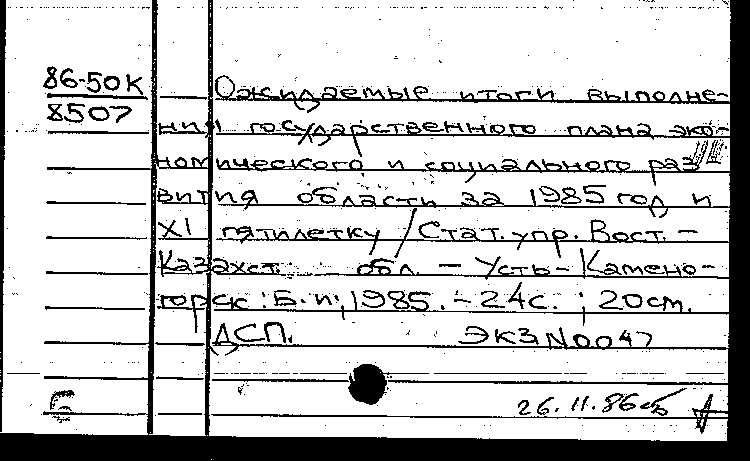 86-50К
8507
Ожидаемые итоги выполне-
ния государственного плана эко-
номического и социального раз
вития области за 1985 год и
XI пятилетку / Стат. упр. Вост. -
Казахст. обл. - Усть-Камено-
горск : Б. и., 1985. - 24с. ; 20см.
ДСП. ЭКЗ N0047
Б
26.11.86